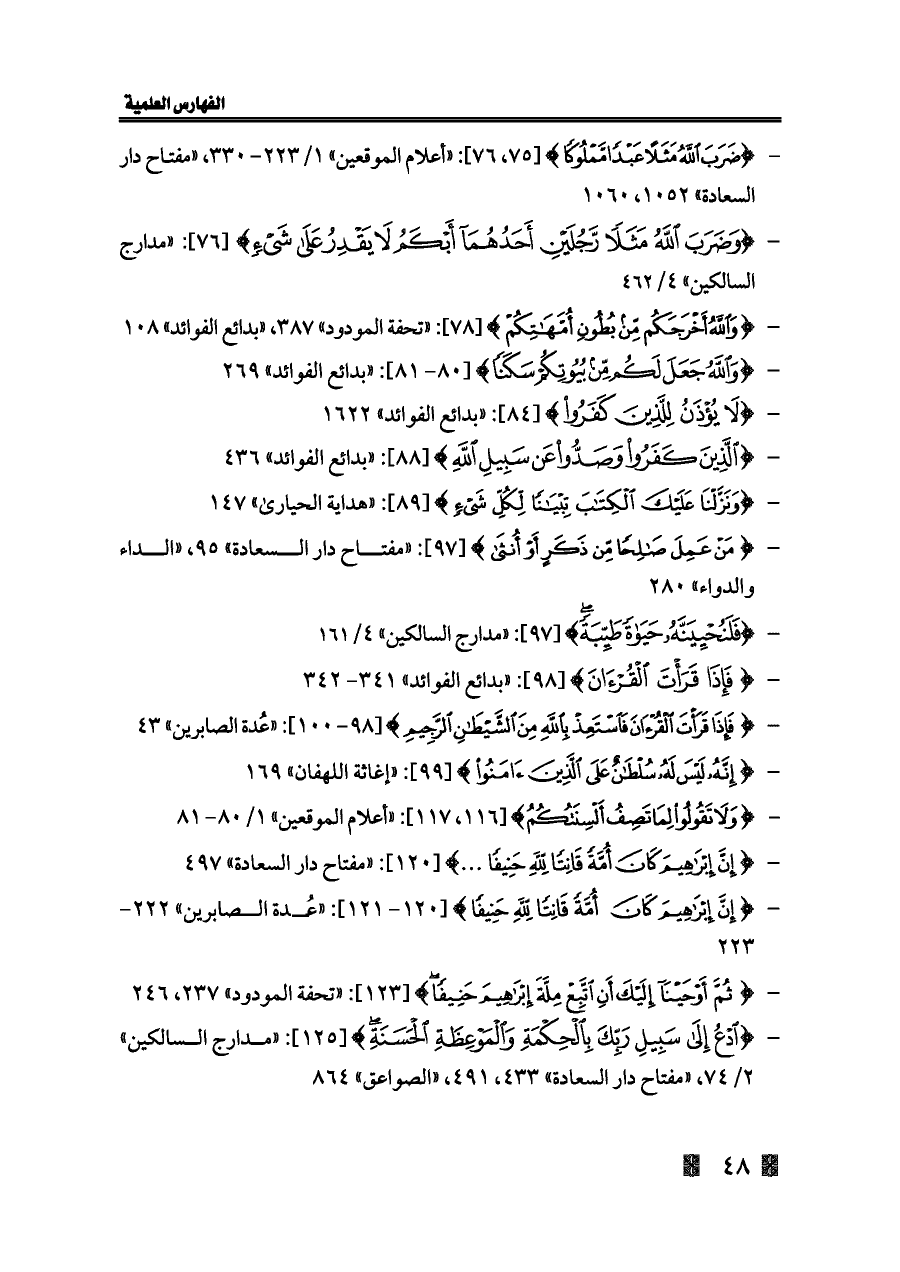 الفهارس العلمية
- ﴿ضَرَبَ ٱللَّهُ مَثَلًا عَبْدًا مَّمْلُوكًا﴾ [٧٥، ٧٦]: «أعلام الموقعين» ١/ ٢٢٣- ٣٣٠، «مفتاح دار
السعادة» ١٠٥٢، ١٠٦٠
- ﴿وَضَرَبَ ٱللَّهُ مَثَلًا رَّجُلَيْنِ أَحَدُهُمَآ أَبْكَمُ لَا يَقْدِرُ عَلَىٰ شَيْءٍ﴾ [٧٦]: «مدارج
السالكين» ٤/ ٤٦٢
- ﴿وَٱللَّهُ أَخْرَجَكُم مِّنۢ بُطُونِ أُمَّهَٰتِكُمْ﴾ [٧٨]: «تحفة المودود» ٣٨٧، «بدائع الفوائد» ١٠٨
- ﴿وَٱللَّهُ جَعَلَ لَكُم مِّنۢ بُيُوتِكُمْ سَكَنًا﴾ [٨٠- ٨١]: «بدائع الفوائد» ٢٦٩
- ﴿لَا يُؤْذَنُ لِلَّذِينَ كَفَرُوا۟﴾ [٨٤]: «بدائع الفوائد» ١٦٢٢
- ﴿ٱلَّذِينَ كَفَرُوا۟ وَصَدُّوا۟ عَن سَبِيلِ ٱللَّهِ﴾ [٨٨]: «بدائع الفوائد» ٤٣٦
- ﴿وَنَزَّلْنَا عَلَيْكَ ٱلْكِتَٰبَ تِبْيَٰنًا لِّكُلِّ شَيْءٍ﴾ [٨٩]: «هداية الحيارىٰ» ١٤٧
- ﴿مَنْ عَمِلَ صَٰلِحًا مِّن ذَكَرٍ أَوْ أُنثَىٰ﴾ [٩٧]: «مفتاح دار السعادة» ٩٥، «الداء
والدواء» ٢٨٠
- ﴿فَلَنُحْيِيَنَّهُۥ حَيَوٰةً طَيِّبَةً ۖ﴾ [٩٧]: «مدارج السالكين» ٤/ ١٦١
- ﴿فَإِذَا قَرَأْتَ ٱلْقُرْءَانَ﴾ [٩٨]: «بدائع الفوائد» ٣٤١- ٣٤٢
- ﴿فَإِذَا قَرَأْتَ ٱلْقُرْءَانَ فَٱسْتَعِذْ بِٱللَّهِ مِنَ ٱلشَّيْطَٰنِ ٱلرَّجِيمِ﴾ [٩٨- ١٠٠]: «عُدة الصابرين» ٤٣
- ﴿إِنَّهُۥ لَيْسَ لَهُۥ سُلْطَٰنٌ عَلَى ٱلَّذِينَ ءَامَنُوا۟﴾ [٩٩]: «إغاثة اللهفان» ١٦٩
- ﴿وَلَا تَقُولُوا۟ لِمَا تَصِفُ أَلْسِنَتُكُمُ﴾ [١١٦، ١١٧]: «أعلام الموقعين» ١/ ٨٠- ٨١
- ﴿إِنَّ إِبْرَٰهِيمَ كَانَ أُمَّةً قَانِتًا لِّلَّهِ حَنِيفًا ...﴾ [١٢٠]: «مفتاح دار السعادة» ٤٩٧
- ﴿إِنَّ إِبْرَٰهِيمَ كَانَ أُمَّةً قَانِتًا لِّلَّهِ حَنِيفًا﴾ [١٢٠- ١٢١]: «عُدة الصابرين» ٢٢٢-
٢٢٣
- ﴿ثُمَّ أَوْحَيْنَآ إِلَيْكَ أَنِ ٱتَّبِعْ مِلَّةَ إِبْرَٰهِيمَ حَنِيفًا ۖ﴾ [١٢٣]: «تحفة المودود» ٢٣٧، ٢٤٦
- ﴿ٱدْعُ إِلَىٰ سَبِيلِ رَبِّكَ بِٱلْحِكْمَةِ وَٱلْمَوْعِظَةِ ٱلْحَسَنَةِ ۖ﴾ [١٢٥]: «مدارج السالكين»
٢/ ٧٤، «مفتاح دار السعادة» ٤٣٣، ٤٩١، «الصواعق» ٨٦٤
٤٨